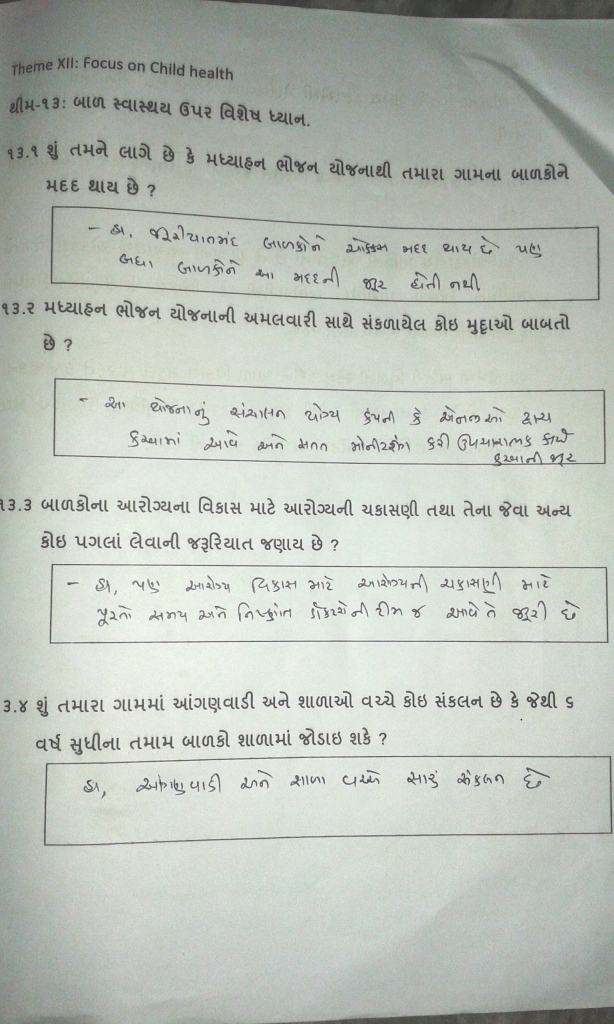 Theme XII: Focus on Child health
થીમ-૧૩: બાળ સ્વાસ્થય ઉપર વિશેષ ધ્યાન.
૧૩.૧ શું તમને લાગે છે કે મધ્યાહન ભોજન યોજનાથી તમારા ગામના બાળકોને
મદદ થાય છે ?
- હા, જરૂરીયાતમંદ બાળકોને ચોક્કસ મદદ થાય છે પણ
બધા બાળકોને આ મદદની જરૂર હોતી નથી
૧૩.૨ મધ્યાહન ભોજન યોજનાની અમલવારી સાથે સંકળાયેલ કોઇ મુદ્દાઓ બાબતો
છે ?
- આ યોજનાનું સંચાલન યોગ્ય કંપની કે એનજીઓ દ્વારા
કરવામાં આવે અને સતત મોનીટરીંગ કરી ઉપચારાત્મક કાર્ય
કરવાની જરૂર
૧૩.૩ બાળકોના આરોગ્યના વિકાસ માટે આરોગ્યની ચકાસણી તથા તેના જેવા અન્ય
કોઇ પગલાં લેવાની જરૂરિયાત જણાય છે ?
- હા, પણ આરોગ્ય વિકાસ માટે આરોગ્યની ચકાસણી માટે
પૂરતો સમય અને નિષ્ણાંત ડૉક્ટરોની ટીમ જ આવે તે જરૂરી છે
૩.૪ શું તમારા ગામમાં આંગણવાડી અને શાળાઓ વચ્ચે કોઇ સંકલન છે કે જેથી ૬
વર્ષ સુધીના તમામ બાળકો શાળામાં જોડાઇ શકે ?
હા, આંગણવાડી અને શાળા વચ્ચે સારું સંકલન છે